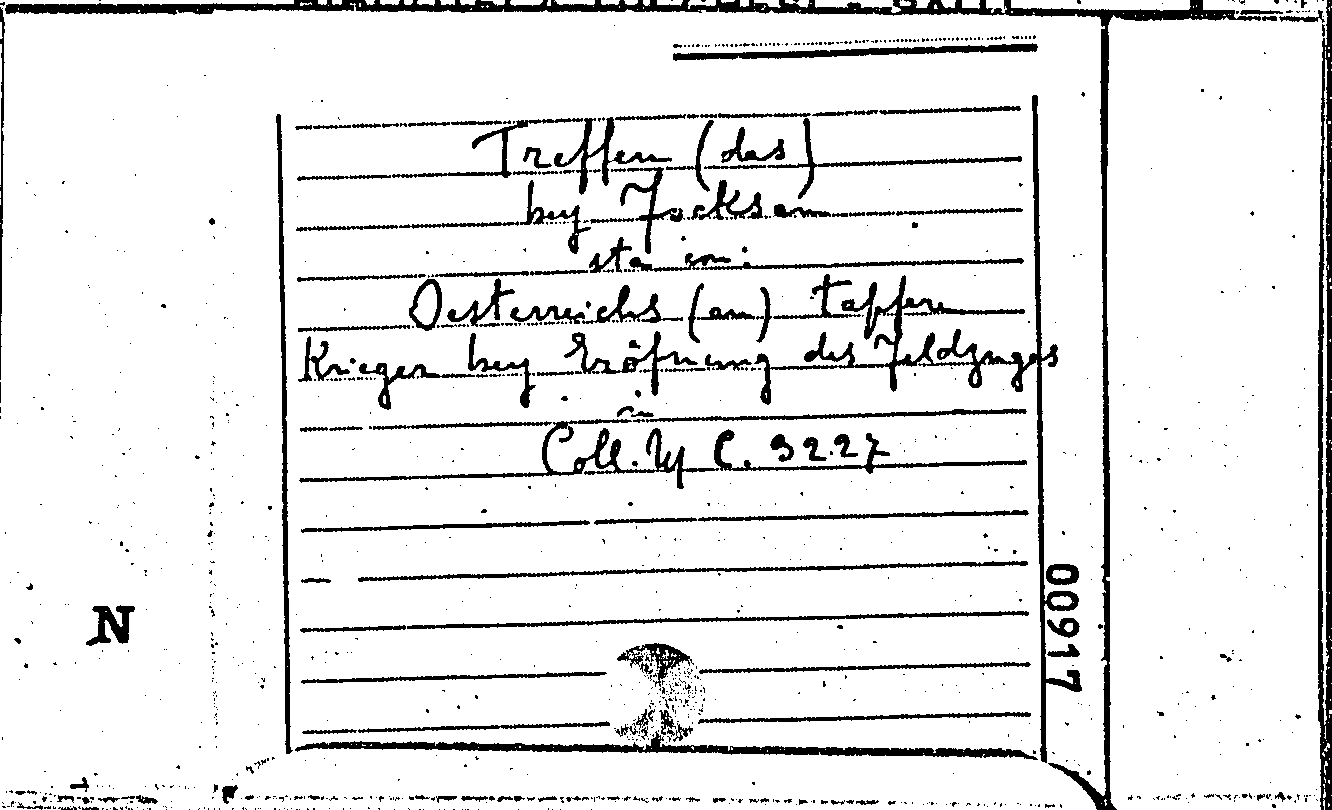 Treffen (das)
bey Focksan
sta in:
Oesterreichs (an) tapfere
Krieger bey Eröfnung des Feldzuges
in
Coll. MC. 92.27
N
00917